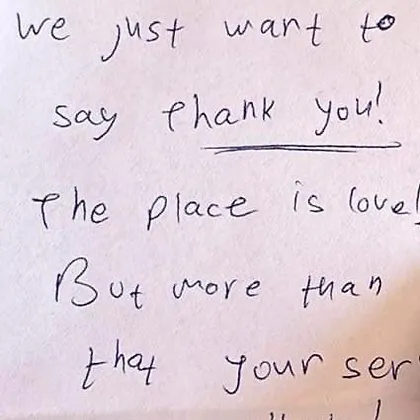 we just want to
say thank you!
The place is lovel
But more than
that your ser